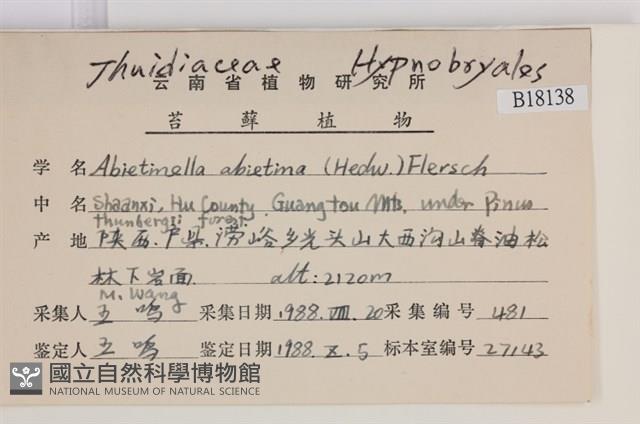 Thuidiaceae Hypnobryales
云南省植物研究所
B18138
苔藓植物
学名 Abietinella abietina (Hedw.) Flersch
中名 Shaanxi, Hu County Guangtou Mts. under Pinus
thunbergii forest.
产地 陕西.户县.涝峪乡光头山大西沟山脊油松
林下岩面 alt: 2120m
M. Wang
采集人 王鸣 采集日期 1988.VIII.20 采集编号 481
鉴定人 王鸣 鉴定日期 1988.X.5 标本室编号 27143
國立自然科學博物館
NATIONAL MUSEUM OF NATURAL SCIENCE